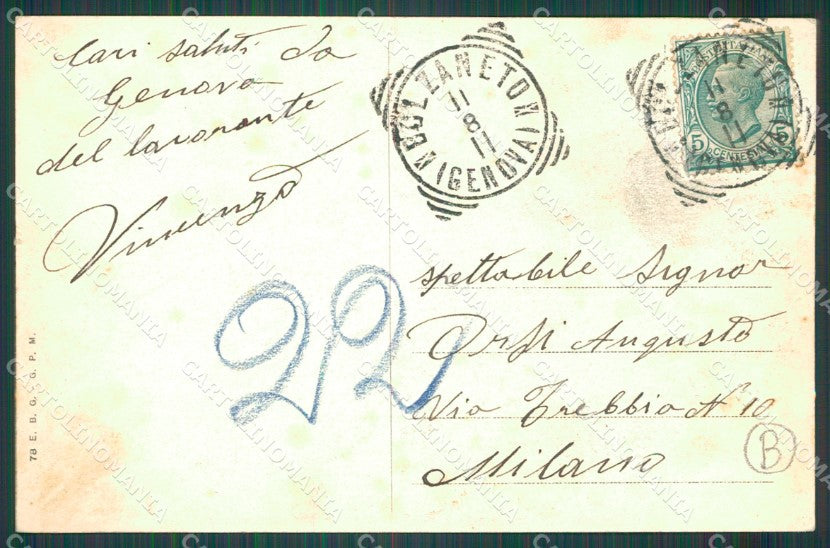 Cari saluti da
Genova
del lavorante
Vincenzo
BOLZANETO
(GENOVA)
11
8
11
BOLZANETO
11
8
11
5 CENTESIMI 5
22
Spettabile Signor
Orsi Augusto
Via Trebbia N 10
Milano
B
78 E. B. G. G. P. M.
CARTOLINOMANIA